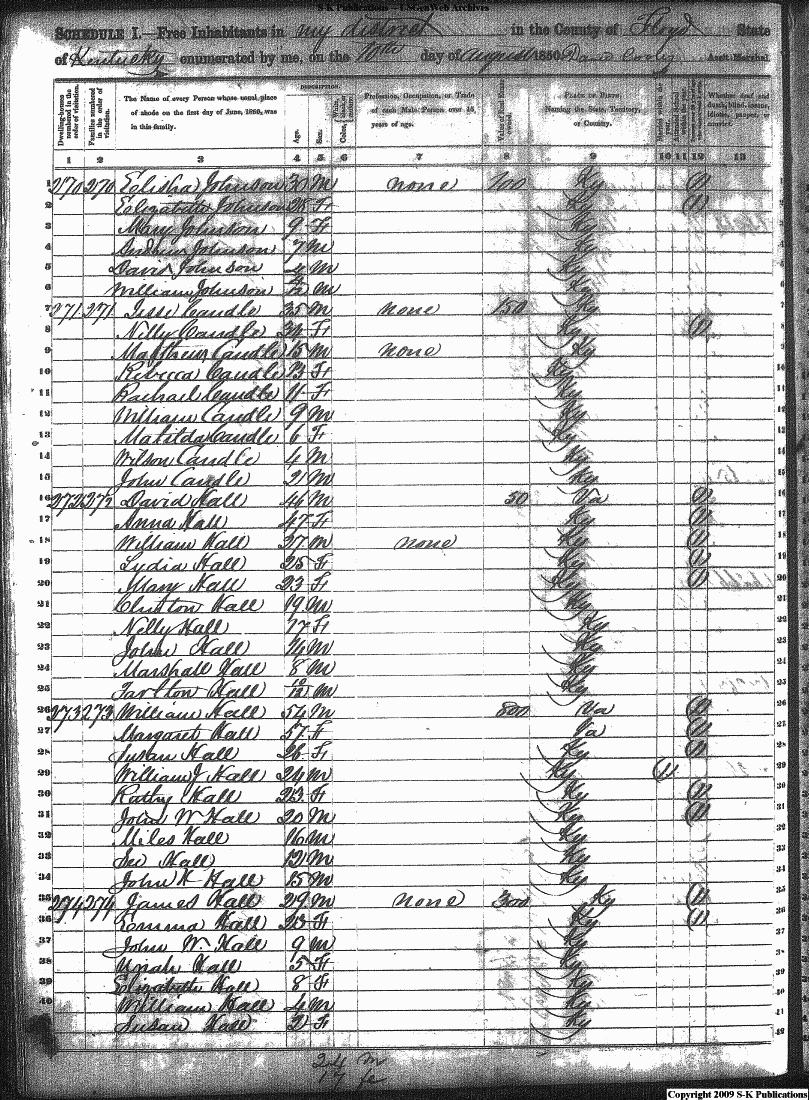 S-K Publications - USGenWeb Archives
SCHEDULE I.—Free Inhabitants in my district in the County of Floyd State
of Kentucky enumerated by me, on the 10th day of August 1850. Ass't Marshal.
Dwelling-houses numbered in the order of visitation. Families numbered in the order of visitation. The Name of every Person whose usual place of abode on the first day of June, 1850, was in this family. DESCRIPTION. Age. Sex. Color Profession, Occupation, or Trade of each Male Person over 15 years of age. Value of Real Estate owned. PLACE OF BIRTH, Naming the State, Territory, or Country. Whether deaf and dumb, blind, insane, idiotic, pauper, or convict.
1 2 3 4 5 6 7 8 9 10 11 12 13
1 270 270 Elisha Johnson 30 M none 100 Ky 1
2 Elizabeth Johnson 28 F Ky 1
3 Mary Johnson 9 F Ky
4 Andrew Johnson 7 M Ky
5 David Johnson 4 M Ky
6 William Johnson M Ky
7 271 271 Jesse Caudle 35 M none 150 Ky
8 Nelly Caudle F Ky 1
9 Matthew Caudle 15 M none Ky
10 Rebecca Caudle 13 F Ky
11 Rachael Caudle 11 F Ky
12 William Caudle 9 M Ky
13 Matilda Caudle 6 F Ky
14 Wilson Caudle 4 M Ky
15 John Caudle 2 M Ky
16 272 272 David Hall 46 M 50 Va 1
17 Anna Hall 47 F Ky 1
18 William Hall 27 M none Ky 1
19 Lydia Hall 25 F Ky 1
20 Mary Hall 23 F Ky 1
21 Clinton Hall 19 M Ky
22 Nelly Hall 17 F Ky
23 John Hall 14 M Ky
24 Marshall Hall 8 M Ky
25 Tarlton Hall 10/12 M Ky
26 273 273 William Hall 54 M 800 Va 1
27 Margaret Hall 57 F Va 1
28 Susan Hall 26 F Ky 1
29 William J Hall 24 M Ky 1
30 Kathy Hall 23 F Ky 1
31 John W Hall 20 M Ky 1
32 Miles Hall 16 M Ky
33 Hall 12 M Ky
34 John K Hall 15 M Ky
35 274 274 James Hall 29 M none 300 Ky 1
36 Emma Hall 23 F Ky 1
37 John W. Hall 9 M Ky
38 Hall 5 F Ky
39 Elizabeth Hall 8 F Ky
40 William Hall 4 M Ky
Susan Hall 2 F Ky
24 m
17 fe
Copyright 2009 S-K Publications